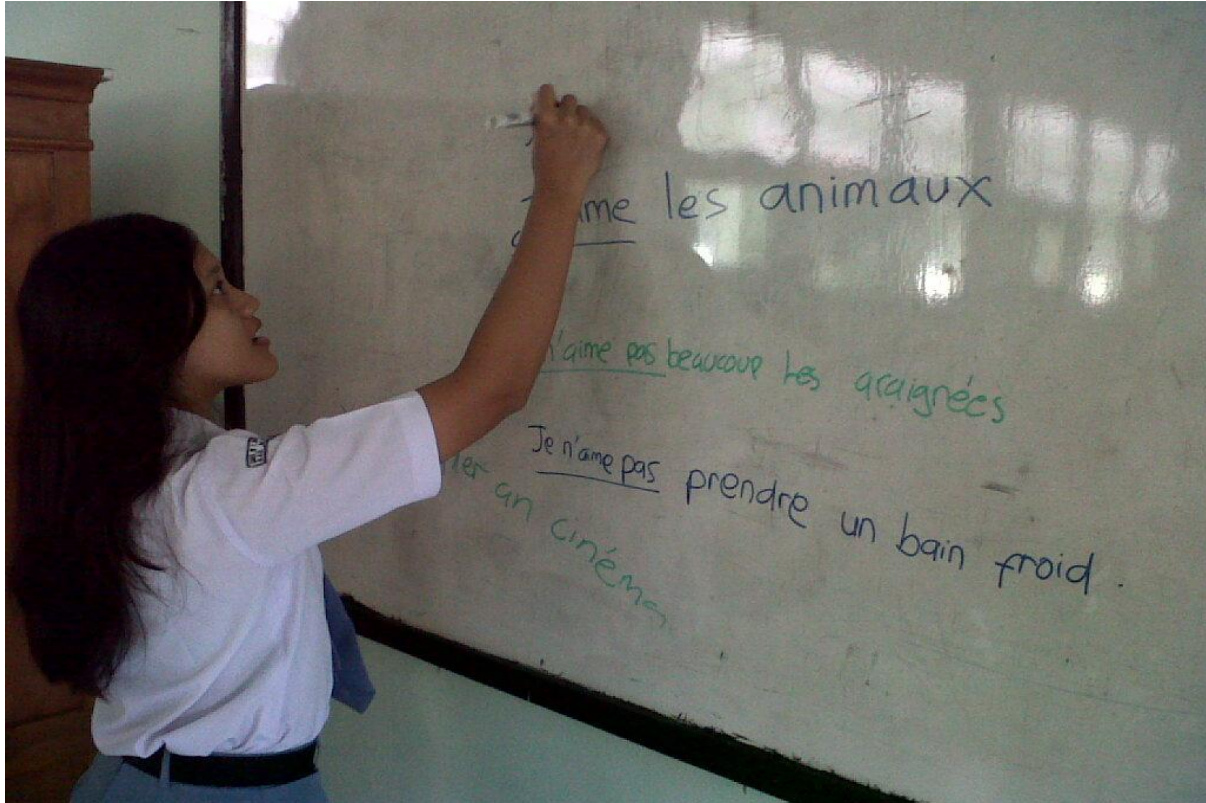 les animaux
n'aime pas beaucoup les araignées
Je n'ame pas prendre un bain froid.
ler an cinéma